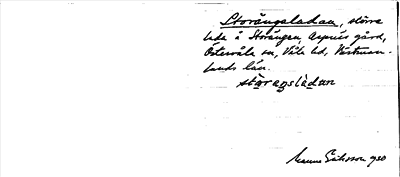 Storängsladan, större
lada å Storängen, Aspnäs gård,
Östervåla sn, Våla hd, Västman-
lands län.
storaŋslàdan
Manne Eriksson 1930